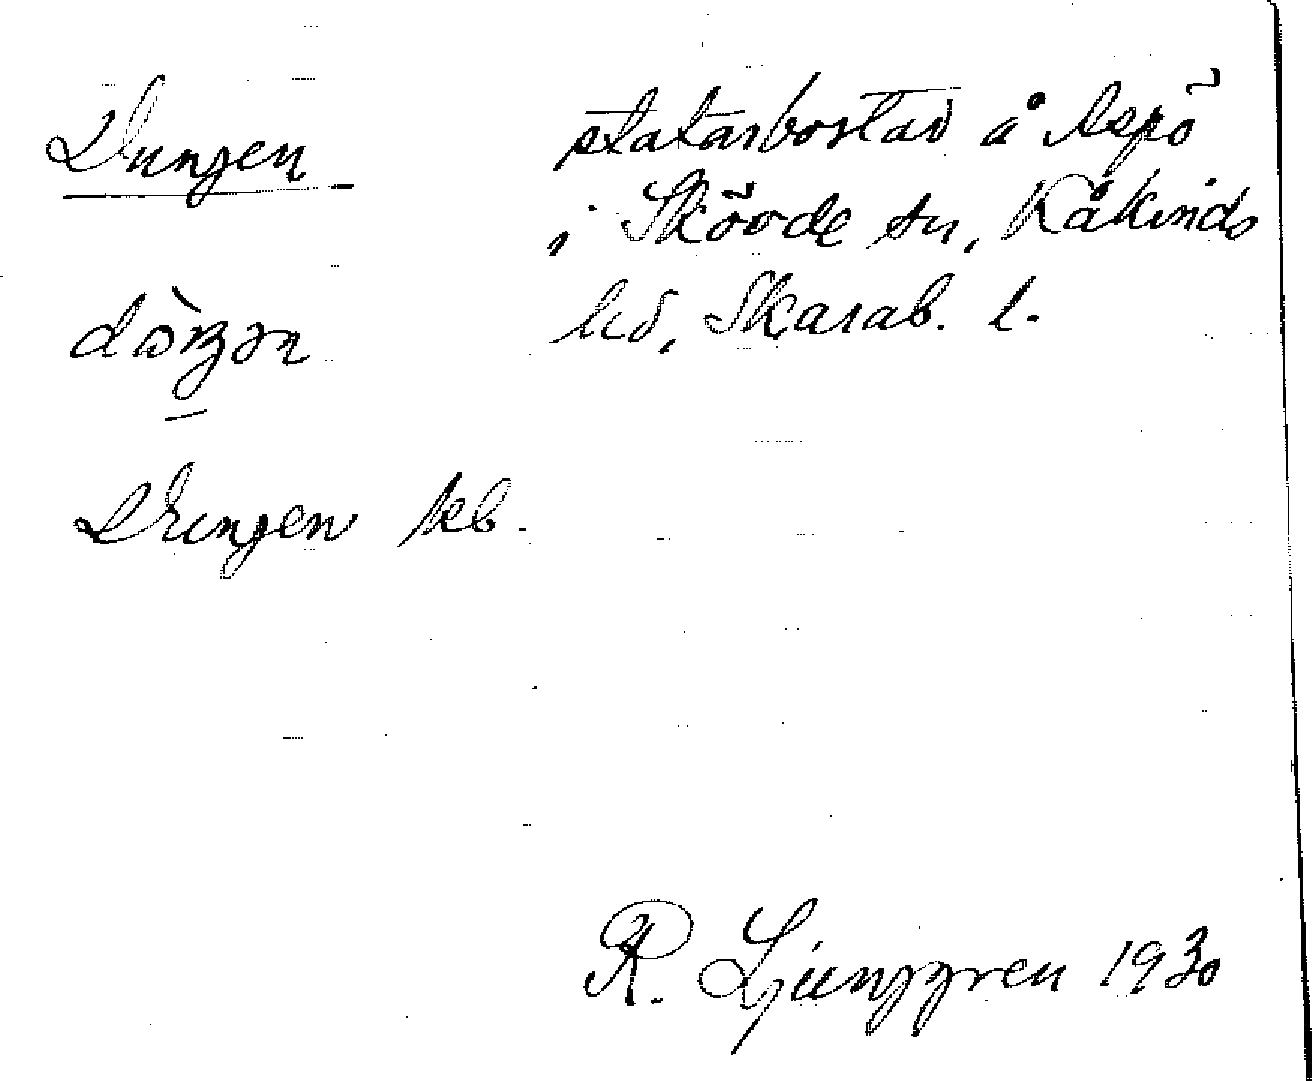 Dungen
statarbostad å Aspö
i Skövde sn, Kåkinds
hd, Skarab. l.
dòŋən
Dungen kb.
R. Ljunggren 1930